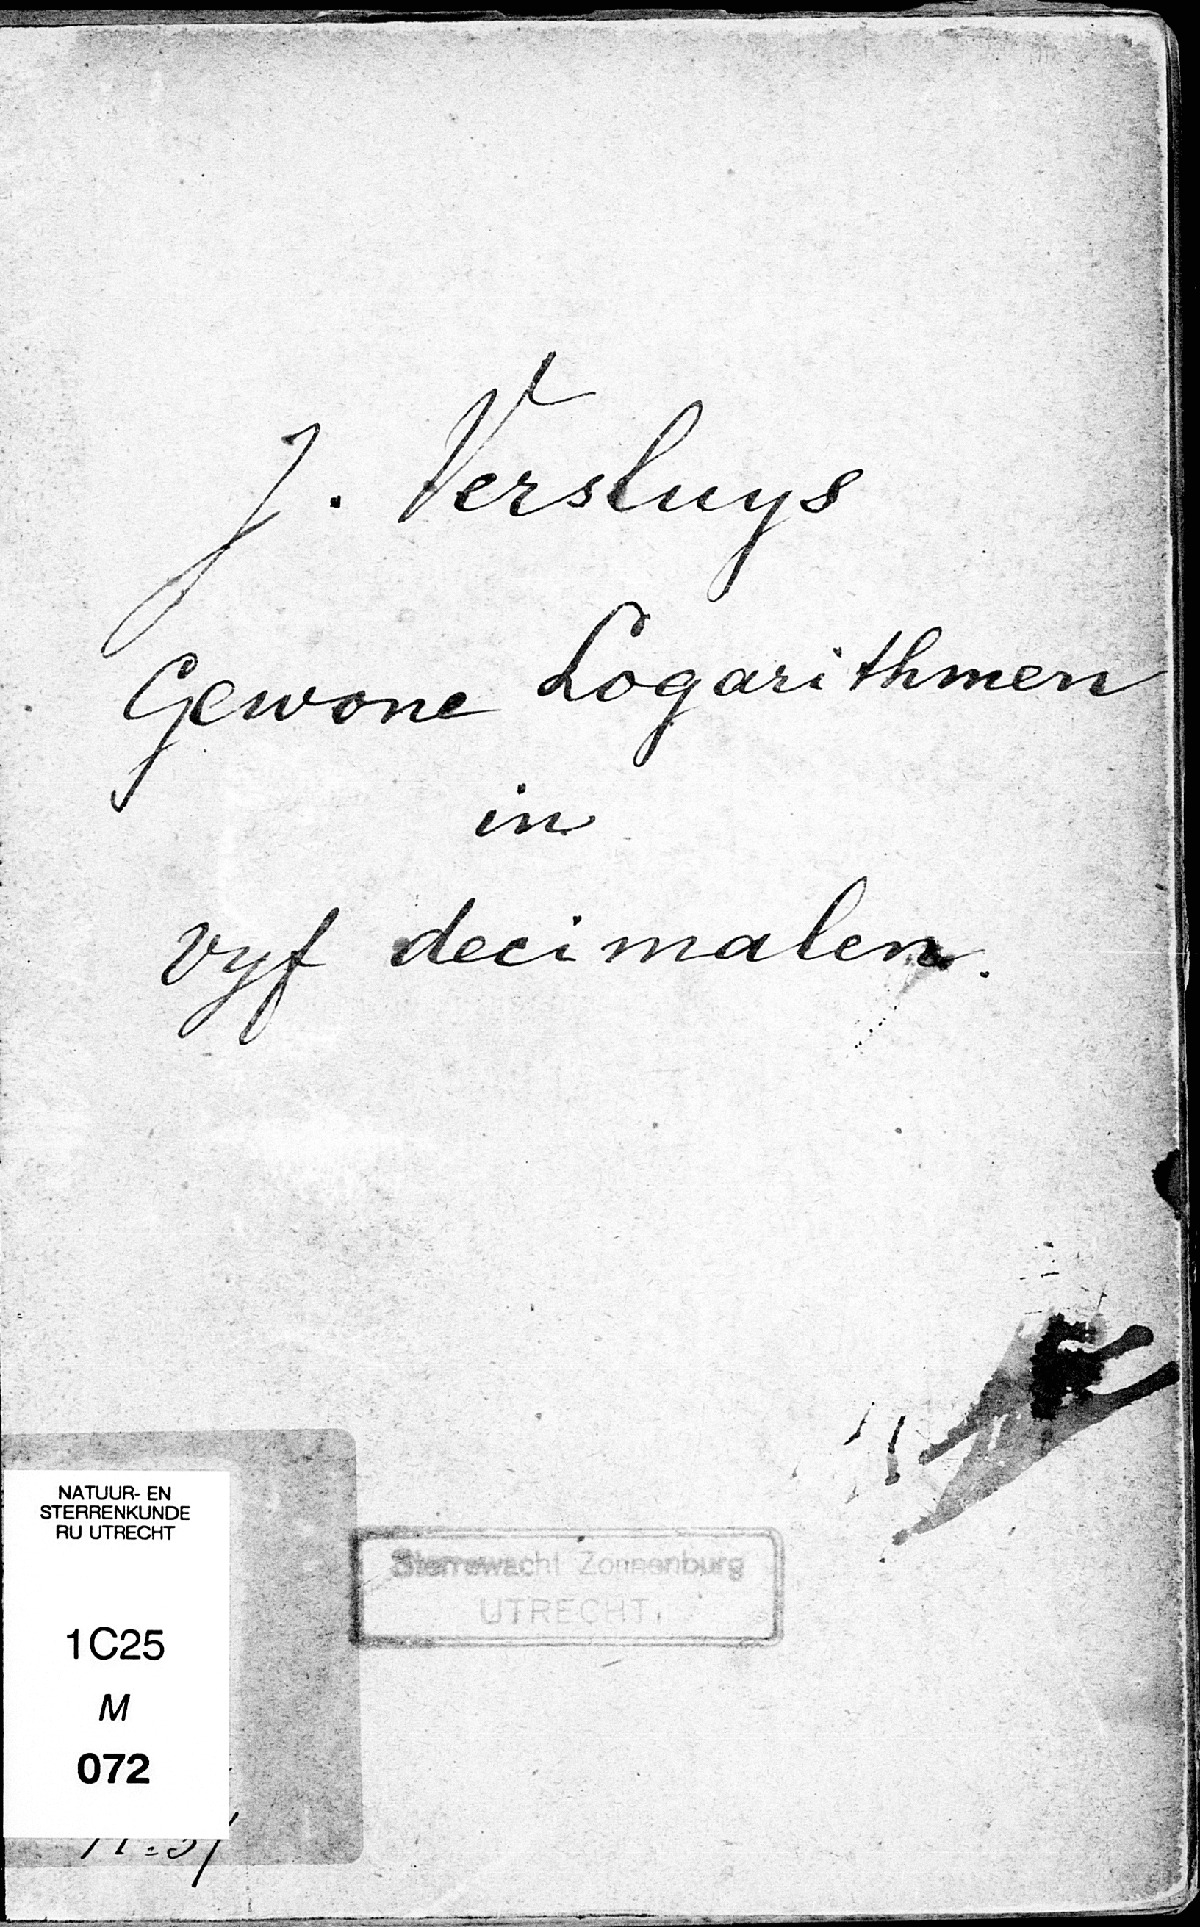 J. Versluys
Gewone Logarithmen
in
vyf decimalen.
NATUUR- EN
STERRENKUNDE
RU UTRECHT
1C25
M
072
Sterrewacht Zonnenburg
UTRECHT.